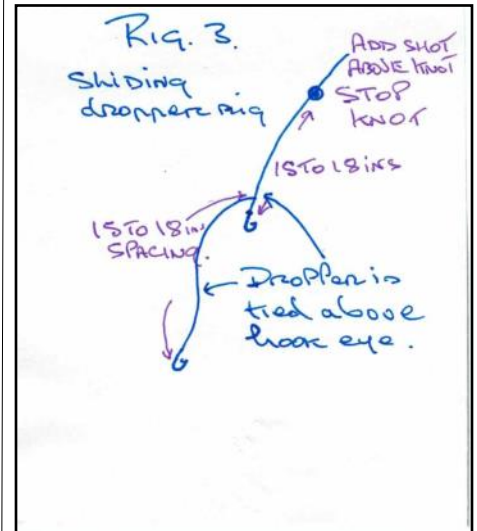 RIG. 3.
Sliding
dropper rig
ADD SHOT
ABOVE KNOT
STOP
KNOT
15 TO 18 INS
15 TO 18 IN
SPACING.
Dropper is
tied above
hook eye.